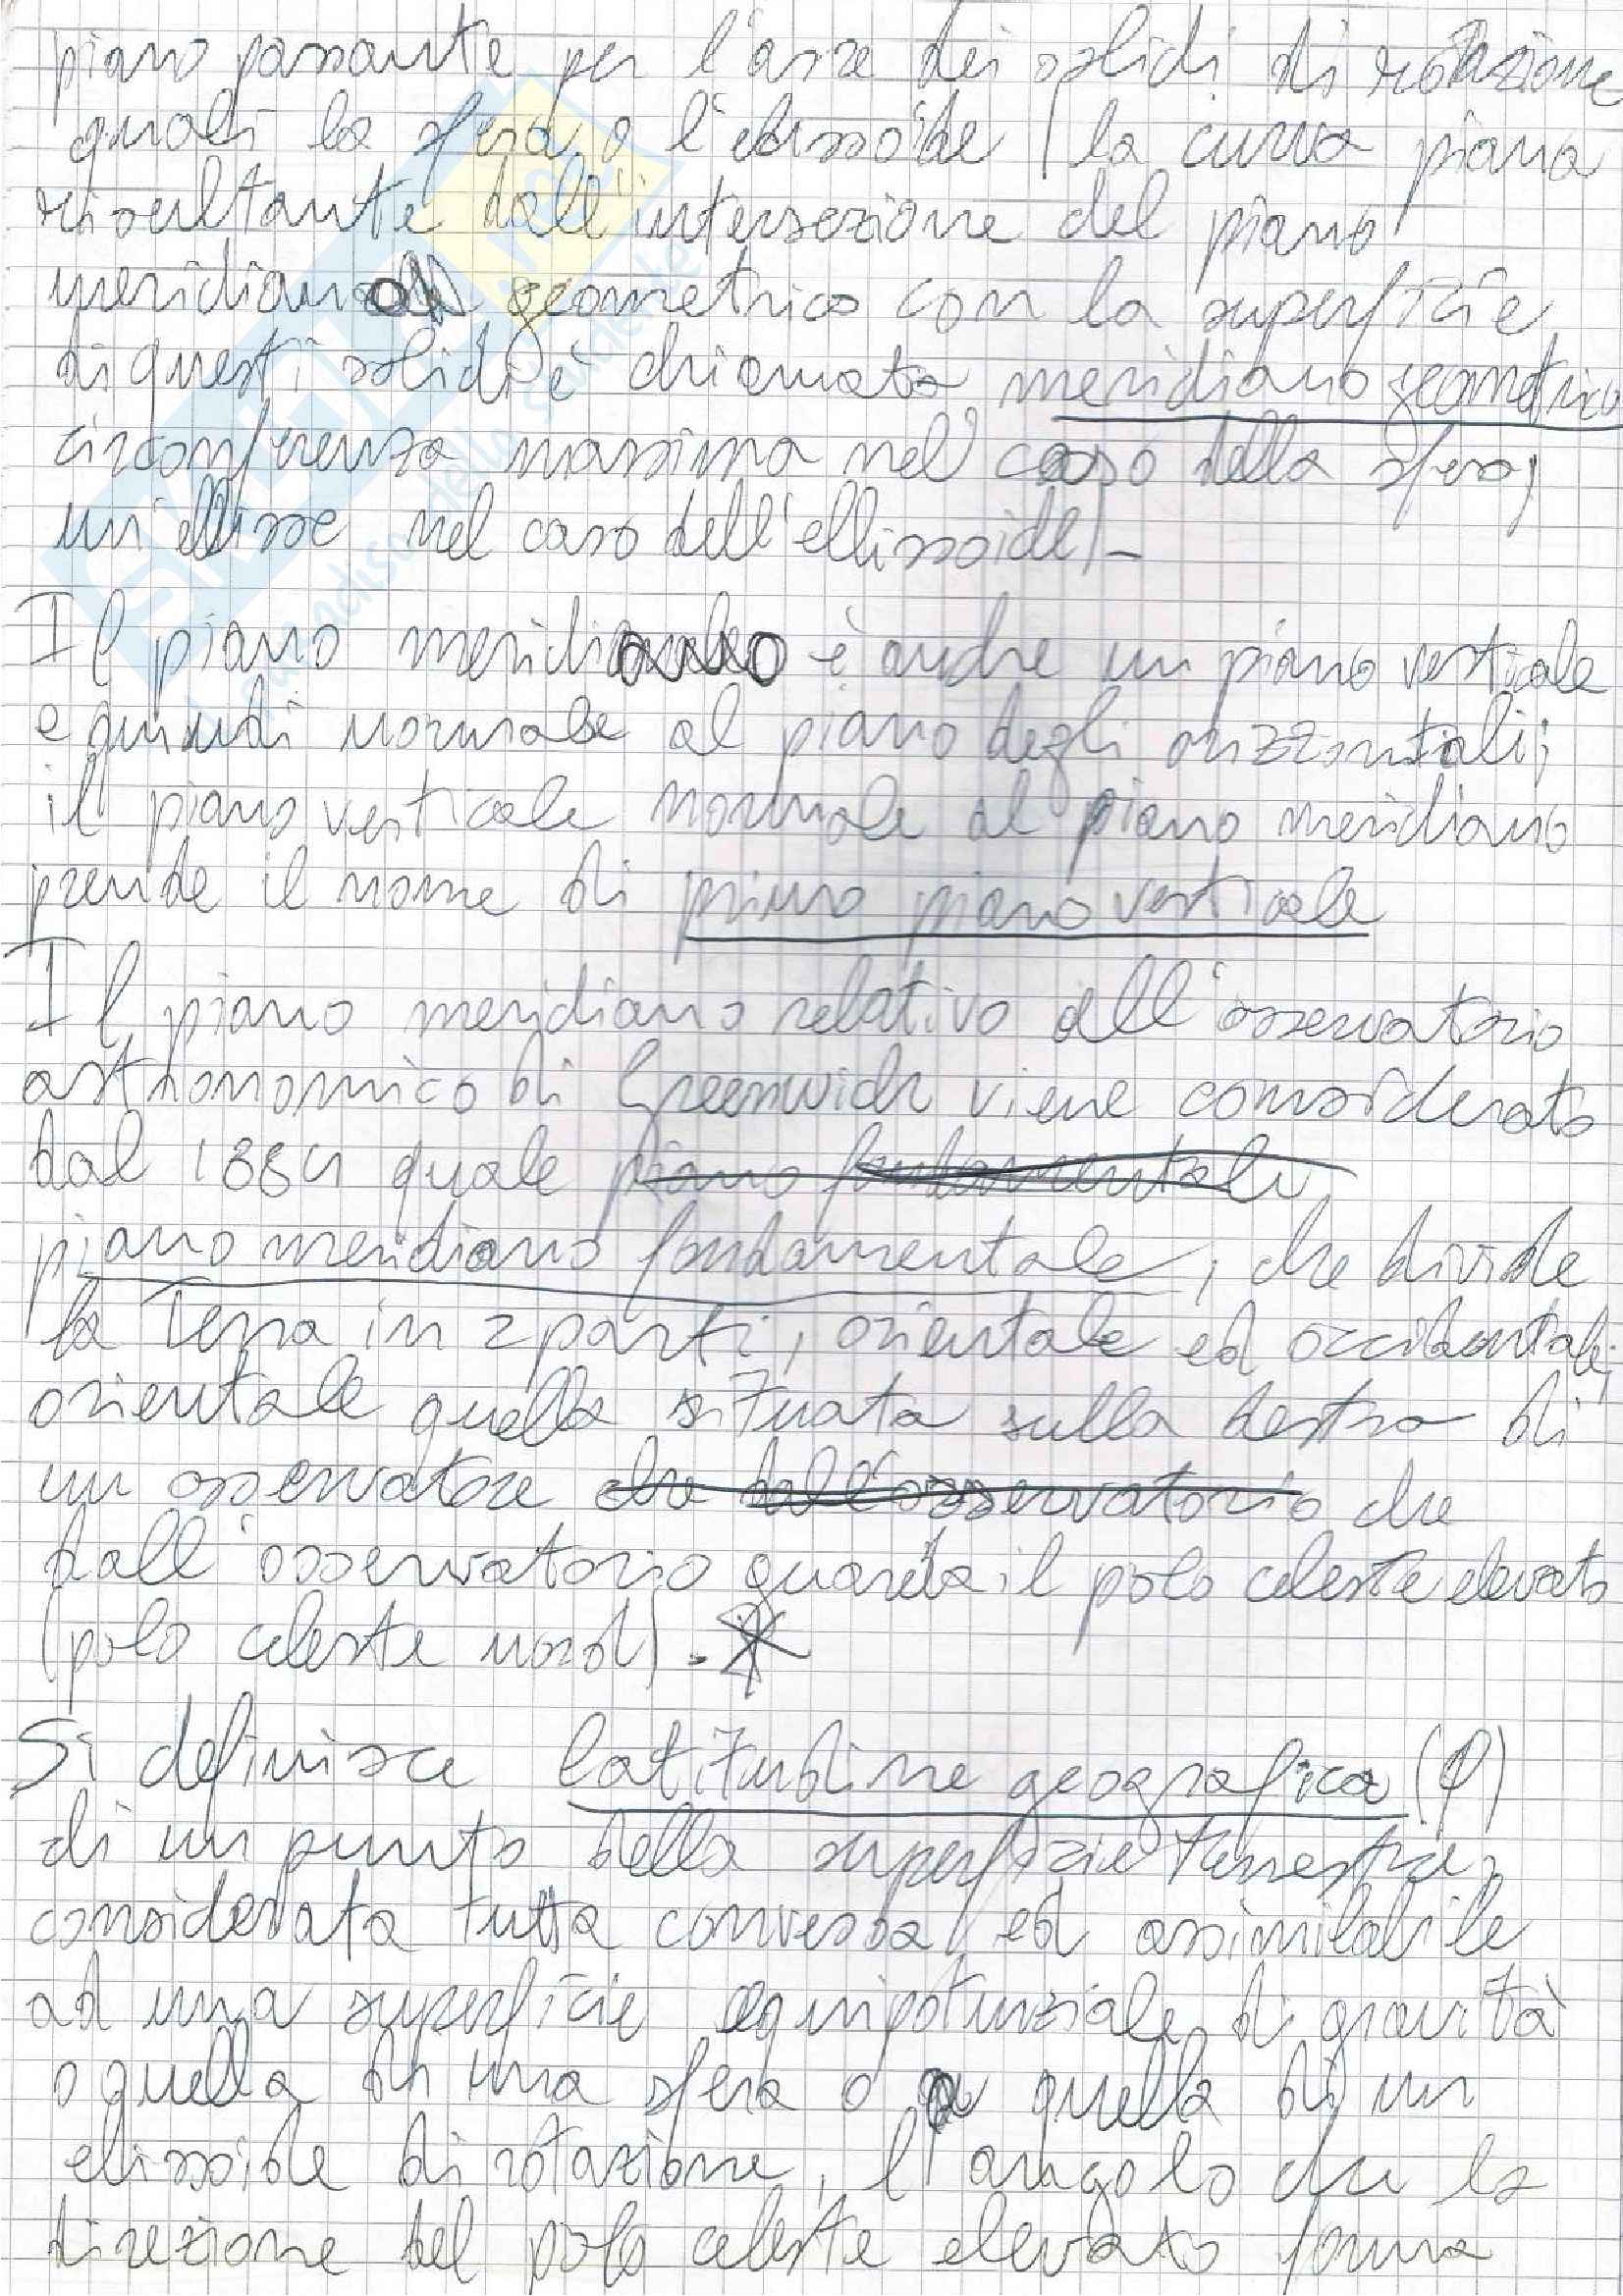 piano passante per l'asse dei solidi di rotazione
quali la sfera o l'elissoide (la curva piana
risultante dall'intersezione del piano
meridiano geometrico con la superficie
di questi solidi è chiamata meridiano geometrico
circonferenza massima nel caso della sfera,
un'ellisse nel caso dell'ellissoide).-
Il piano meridiano è anche un piano verticale
e quindi normale al piano degli orizzontali;
il piano verticale normale al piano meridiano
prende il nome di primo piano verticale
Il piano meridiano relativo all'osservatorio
astronomico di Greenwich viene considerato
dal 1884 quale piano fondamentale
piano meridiano fondamentale, che divide
la Terra in 2 parti, orientale ed occidentale;
orientale quella situata sulla destra di
un osservatore che dall'osservatorio che
dall'osservatorio guarda il polo celeste elevato
(polo celeste nord).*
Si definisce latitudine geografica (φ)
di un punto della superficie terrestre,
considerata tutta convessa ed assimilabile
ad una superficie equipotenziale di gravità
o quella di una sfera o a quella di un
elissoide di rotazione, l'angolo che la
direzione del polo celeste elevato forma